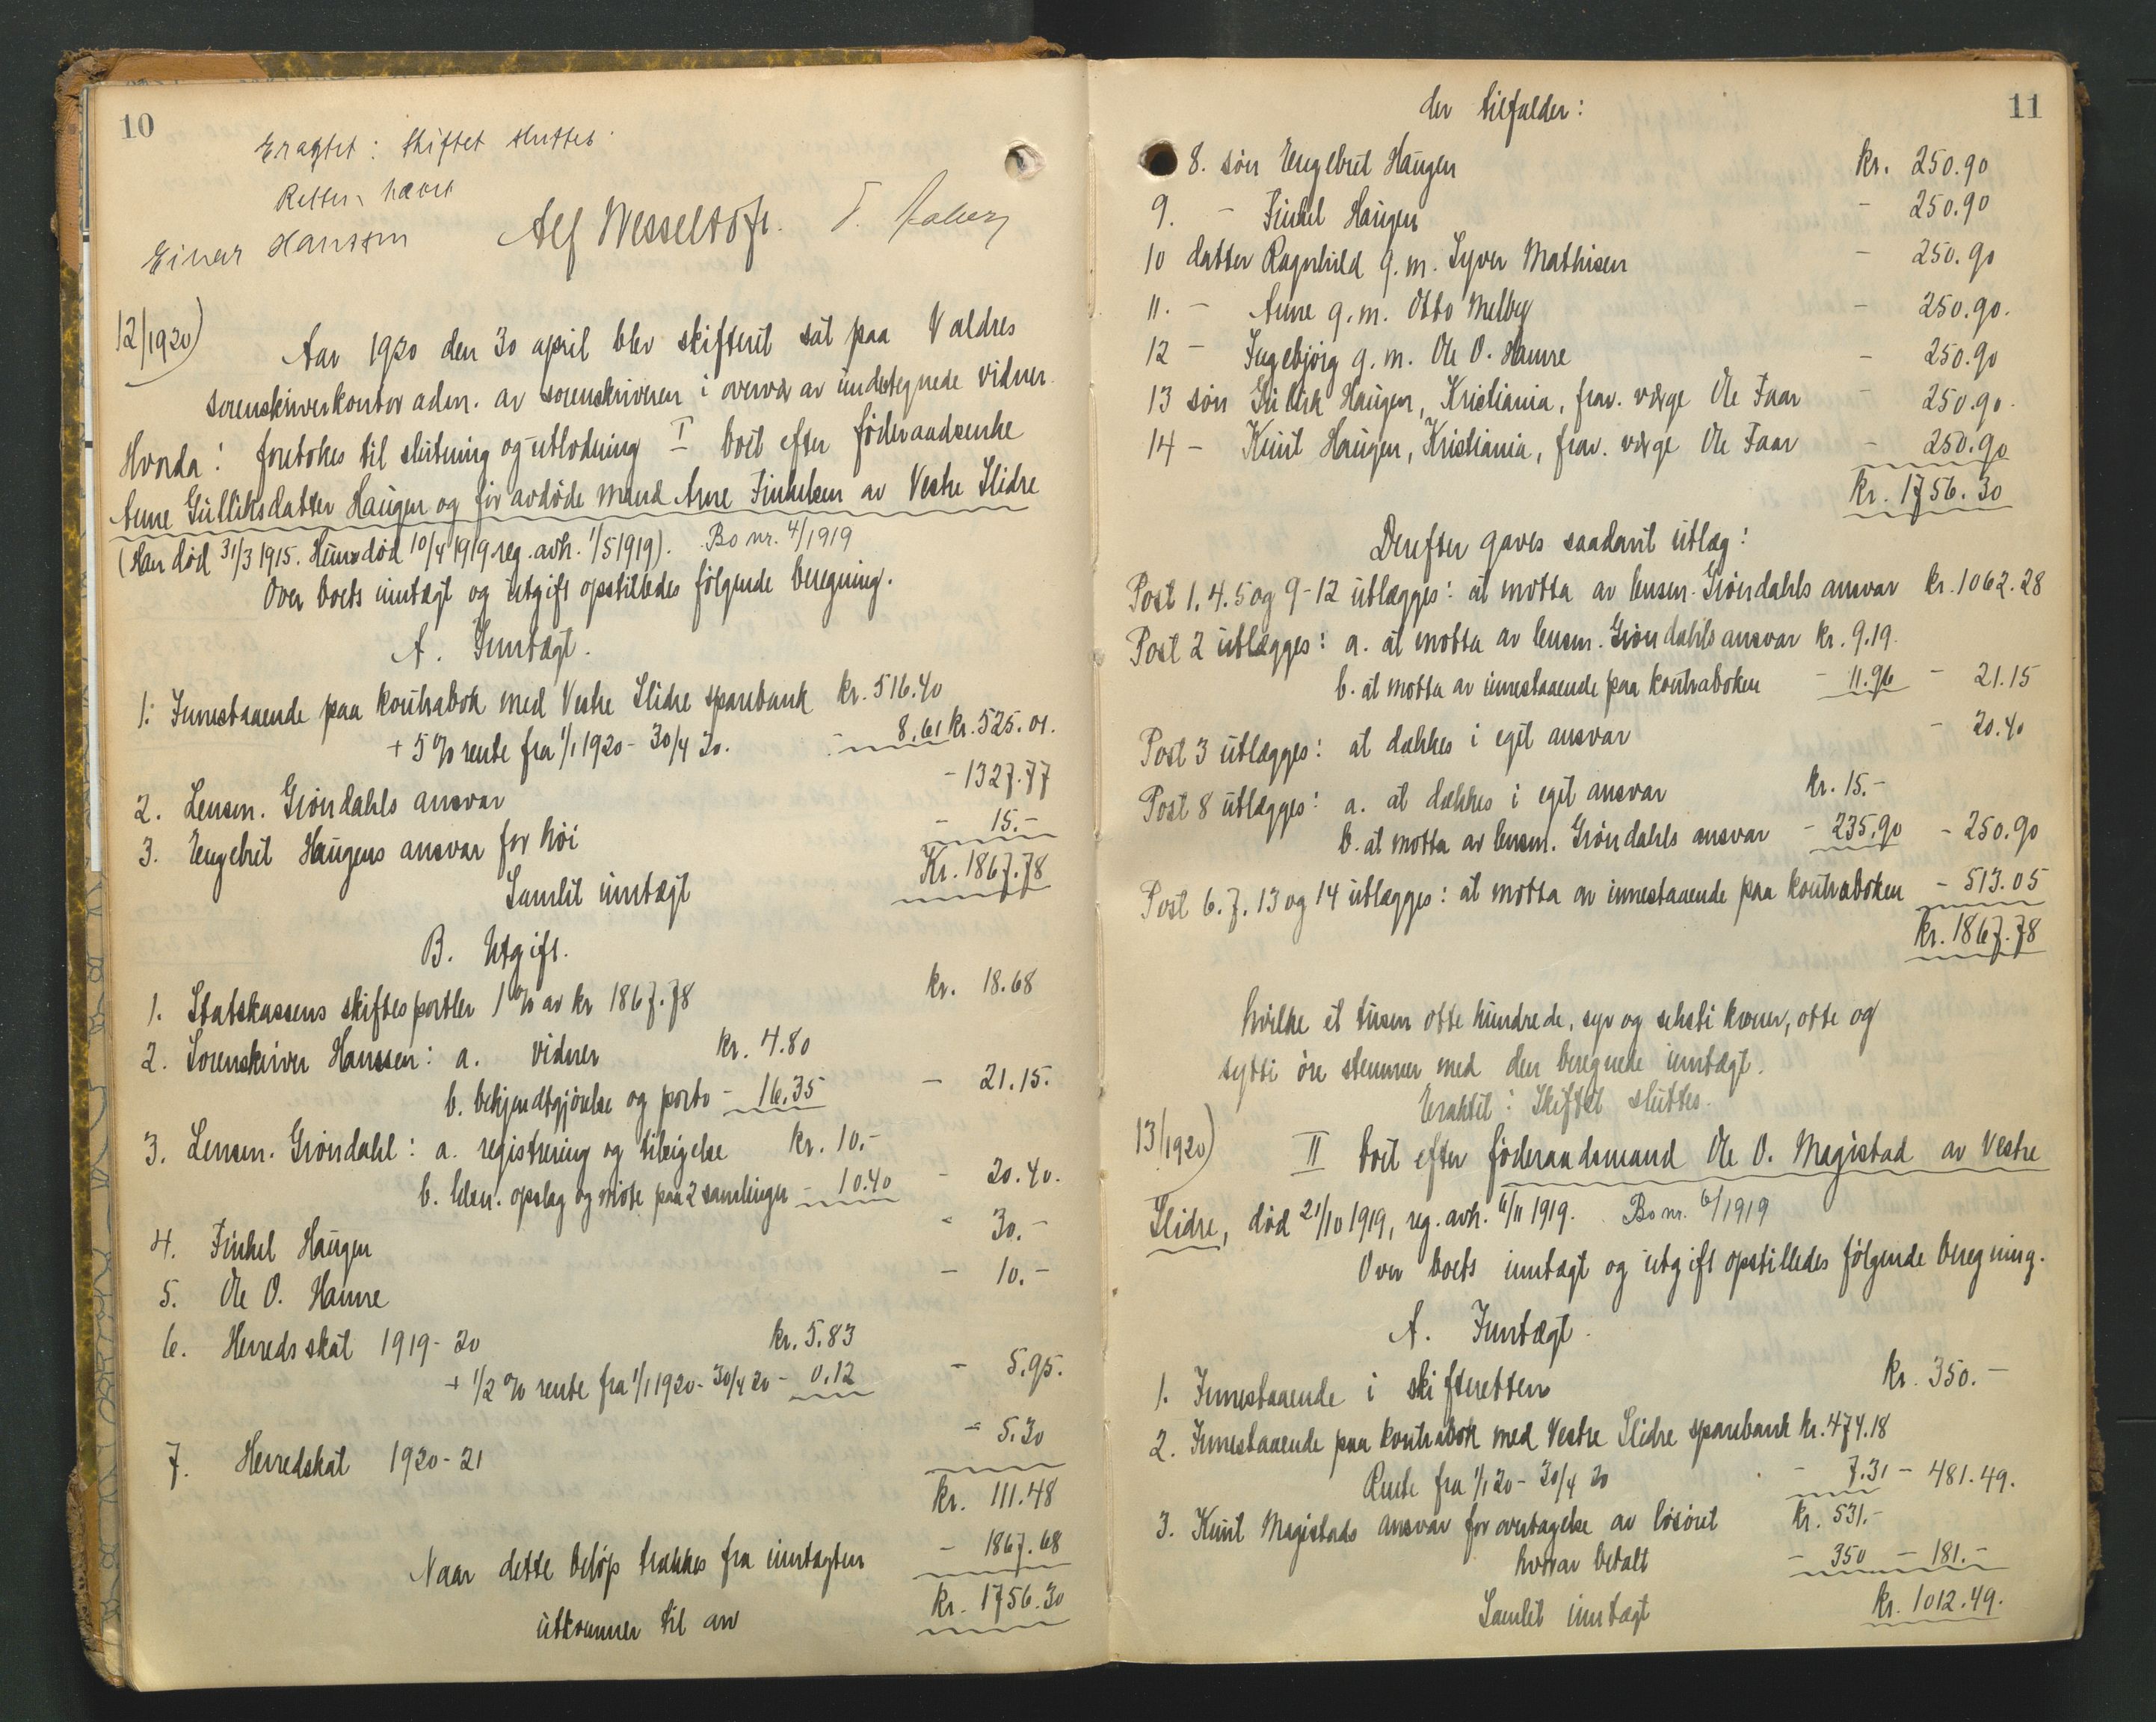 10
Eragtet: Skiftet sluttes.
Retten hævet
Einar Hanssen Alf Wesseltoft.
12/1920)
Aar 1920 den 30 april blev skifteret sat paa Valdres
sorenskriverkontor adm. av sorenskriveren i overvær av undertegnede vidner
Hvorda: foretokes til slutning og utlodning I boet efter føderaadsenke
Anne Gulliksdatter Haugen og før avdøde mand Arne Finkelsen av Vestre Slidre
(Han død 31/3 1915. Hun død 10/4 1919 reg. avh. 1/5 1919). Bo nr. 4/1919
Over boets inntægt og utgift opstilledes følgende beregning.
A. Inntægt.
1. Innestaaende paa kontrabok med Vestre Slidre sparebank kr. 516.40
+ 5 % rente fra 1/1 1920 - 30/4 20. - 8.61 kr. 525.01.
2. Lensm. Grøndahls ansvar - 1327.77
3. Engebret Haugens ansvar for høi - 15.-
Samlet inntægt Kr. 1867.78
B. Utgift.
1. Statskassens skiftesportler 1 % av kr 1867.78 kr. 18.68
2. Sorenskriver Hanssen: a. vidner kr. 4.80
b. bekjendtgjørelse og porto - 16.35 - 21.15.
3. Lensm. Grøndahl: a. registrering og tilsigelse kr. 10.-
b. bekn. opslag og møte paa 2 samlinger - 10.40 - 20.40.
4. Finkel Haugen - 30.-
5. Ole O. Hamre - 10.-
6. Herredsskat 1919-20 kr. 5.83
+ 1/2 % rente fra 1/1 1920 - 30/4 20 - 0.12 - 5.95.
7. Herredskat 1920-21 - 5.30
kr. 111.48
Naar dette beløp trækkes fra inntægten - 1867.68
utkommer til arv kr. 1756.30
11
der tilfalder:
8. søn Engebret Haugen kr. 250.90
9. - Finkel Haugen - 250.90
10 datter Ragnhild g.m. Syver Mathisen - 250.90
11. - Anne g.m. Otto Melby - 250.90.
12 - Ingebjørg g.m. Ole O. Hamre - 250.90
13 søn Gulbrik Haugen, Kristiania, frav. værge Ole Faar - 250.90.
14 - Knut Haugen, Kristiania, frav. værge Ole Faar - 250.90
kr. 1756.30
Derefter gaves saadant utlæg:
Post 1. 4. 5 og 9-12 utlægges: at motta av lensm. Grøndahls ansvar kr. 1062.28
Post 2 utlægges: a. at motta av lensm. Grøndahls ansvar kr. 9.19.
b. at motta av innestaaende paa kontraboken - 11.96 - 21.15
Post 3 utlægges: at dækkes i eget ansvar - 20.40
Post 8 utlægges: a. at dækkes i eget ansvar kr. 15.-
b. at motta av lensm. Grøndahls ansvar - 235.90 - 250.90
Post 6. 7. 13 og 14 utlægges: at motta av innestaaende paa kontraboken - 513.05
kr. 1867.78
hvilke et tusen otte hundrede, syv og seksti kroner, otte og
sytti øre stemmer med den beregnede inntægt.
Eraktet: Skiftet sluttes.
13/1920)
II boet efter føderaadsmand Ole O. Magistad av Vestre
Slidre, død 21/10 1919, reg. avh. 6/11 1919. Bo nr. 6/1919
Over boets inntægt og utgift opstilledes følgende beregning.
A. Inntægt.
1. Innestaaende i skifteretten kr. 350.-
2. Innestaaende paa kontrabok med Vestre Slidre sparebank kr. 474.18
Rente fra 1/1 20 - 30/4 20 - 7.31 - 481.49.
3. Knut Magistads ansvar for overtagelse av løsøret kr. 531.-
hvorav betalt - 350 - 181.-
Samlet inntægt kr. 1012.49.